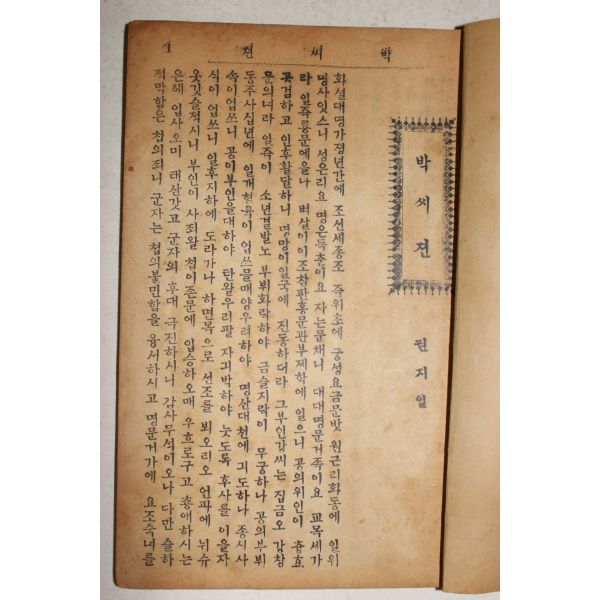 박씨젼 1
박씨젼
권지일
화셜대명가졍년간에 조선세종조 즉위초에 궁셩요금문밧 원근리화동에 일위
명사잇스니 셩은리요 명은득츈이요 자는문채니 대대명문거족이요 교목세가
라 일즉룡문에올나 벼살이이조참판홍문관부제학에 일으니 공의위인이 츙효
곳겸하고 인후활달하니 명망이일국에 진동하더라 그부인강씨는 집금오 강창
문의녀라 일즉이 소년결발노 부뷔화락하야 금슬지락이 무궁하나 공의부뷔
동주사십년에 일개혈육이 업쓰믈매양우려하야 명산대천에 긔도하나 종시사
속이업쓰니 공이부인을대하야 탄왈우리팔 자긔박하야 늣도록 후사를 이을자
식이 업쓰니 일후지하에 도라가나 하면목으로 선조를 뵈오리오 언파에 뉘슈
옷깃슬젹시니 부인이 사죄왈 쳡이존문에 입승하오매 우흐로구고 총애하시는
은헤 입사오미 태산갓고 군자의 후대 극진하시니 감사무석이오나 다만 슬하
젹막함은 쳡의죄니 군자는 쳡의불민함을 용서하시고 명문거가에 요조숙녀를